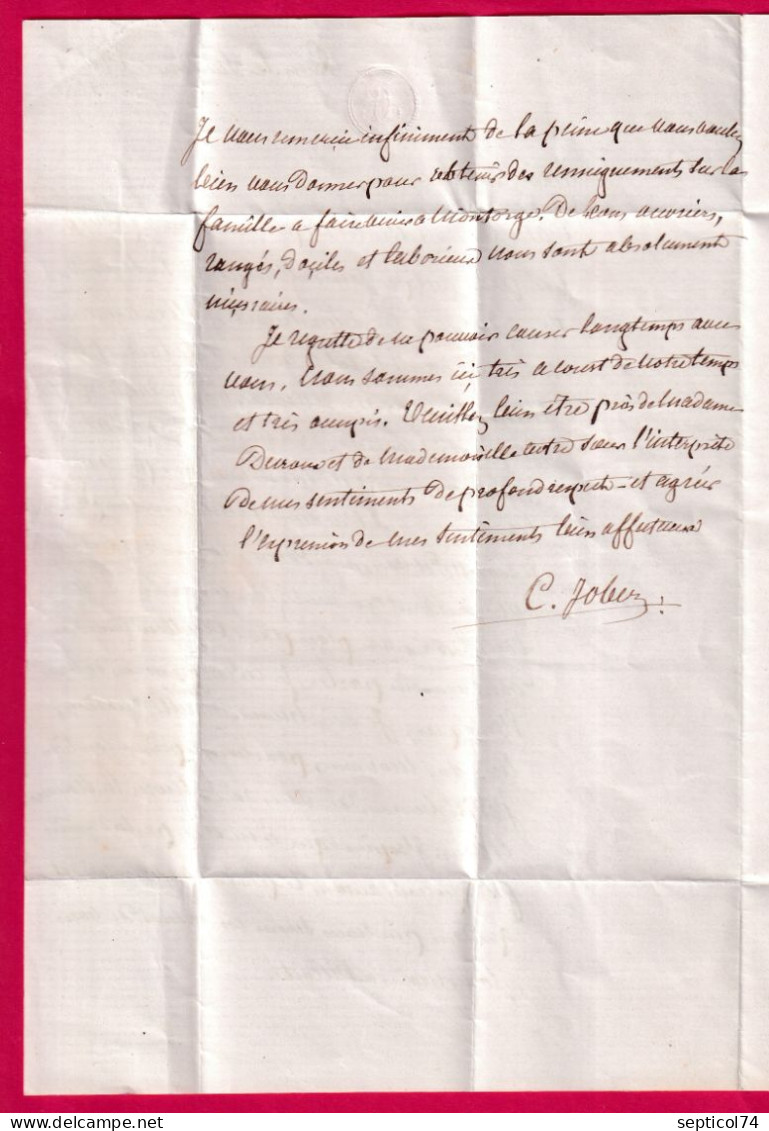 Je vous remercie infiniment de la peine que vous voulez
bien vous donner pour obtenir des renseignements sur la
famille a faire venir a Montorge. De bons ouvriers,
rangés, dociles et laborieux nous sont absolument
nécessaires.
Je regrette de ne pouvoir causer longtemps avec
vous, nous sommes ici très a court de notre temps
et très occupés. Veuillez bien être près de Madame
et de Mademoiselle votre sœur l'interprète
de mes sentiments de profond respect et agréer
l'expression de mes sentiments bien affectueux
C. Jobez
Delcampe.net
septicol74